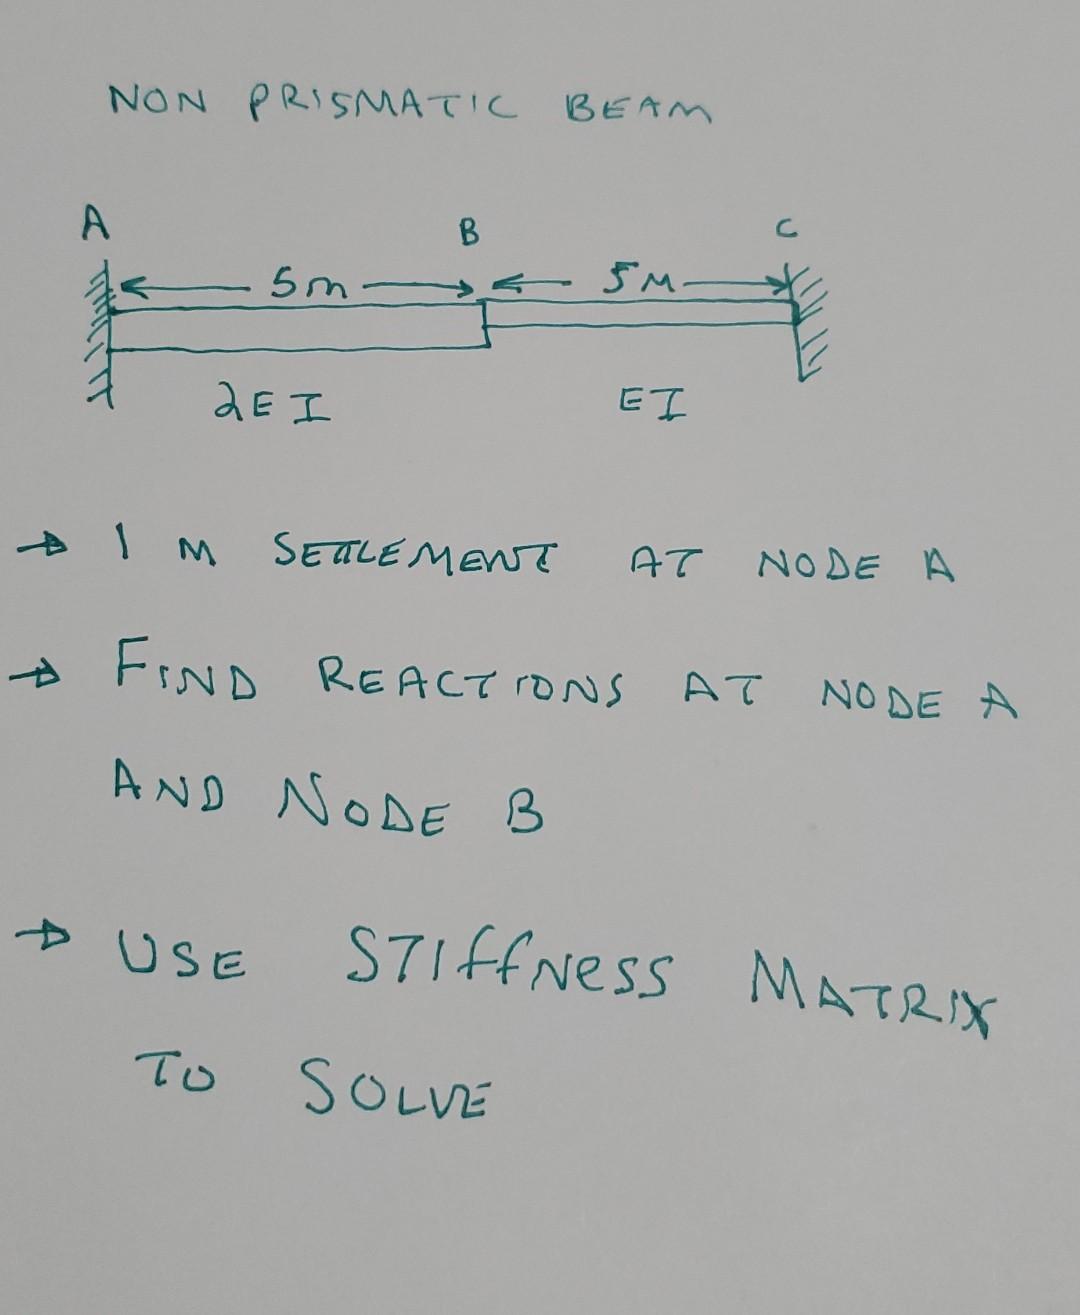 NON PRISMATIC BEAM
A B C
5m 5M
2EI EI
→ 1 M SETTLEMENT AT NODE A
→ FIND REACTIONS AT NODE A
AND NODE B
→ USE STIFFNESS MATRIX
TO SOLVE